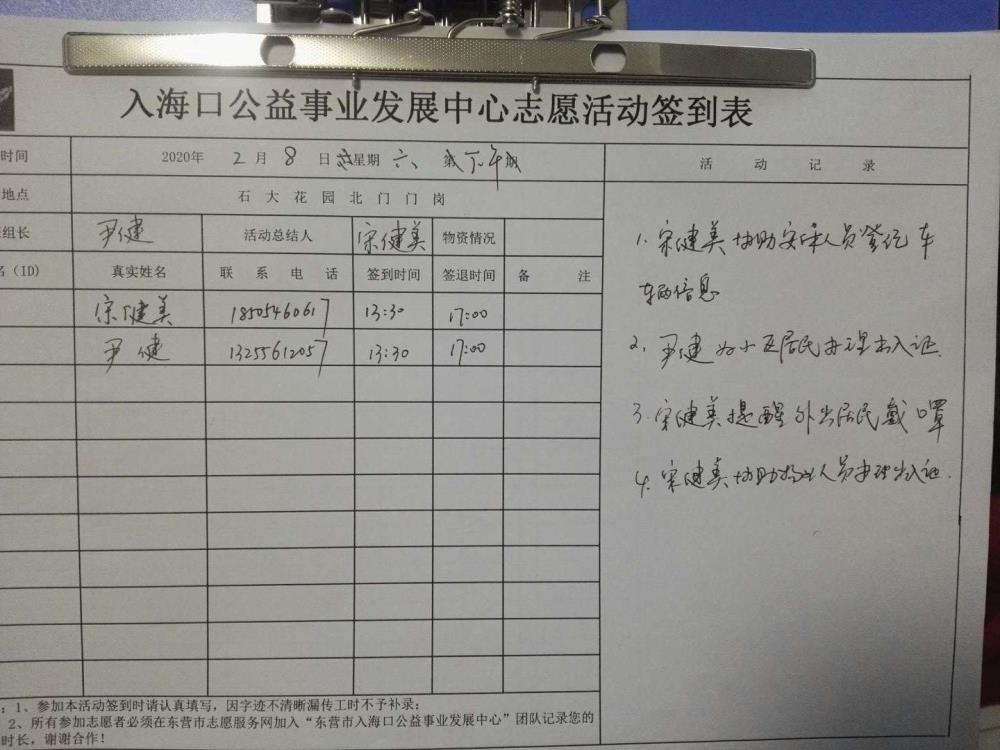 入海口公益事业发展中心志愿活动签到表
时间 2020年 2 月 8 日 星期 六 下午
活 动 记 录
地点 石 大 花 园 北 门 门 岗
组长 尹健 活动总结人 宋健美 物资情况
名(ID) 真实姓名 联 系 电 话 签到时间 签退时间 备 注
宋健美 18505460617 13:30 17:00
尹健 13255612057 13:30 17:00
1. 宋健美协助安保人员登记车
车辆信息
2. 尹健为小区居民办理出入证.
3. 宋健美提醒外出居民戴口罩
4. 宋健美协助人员办理出入证.
:1、参加本活动签到时请认真填写,因字迹不清晰漏传工时不予补录;
2、所有参加志愿者必须在东营市志愿服务网加入“东营市入海口公益事业发展中心”团队记录您的
时长,谢谢合作!